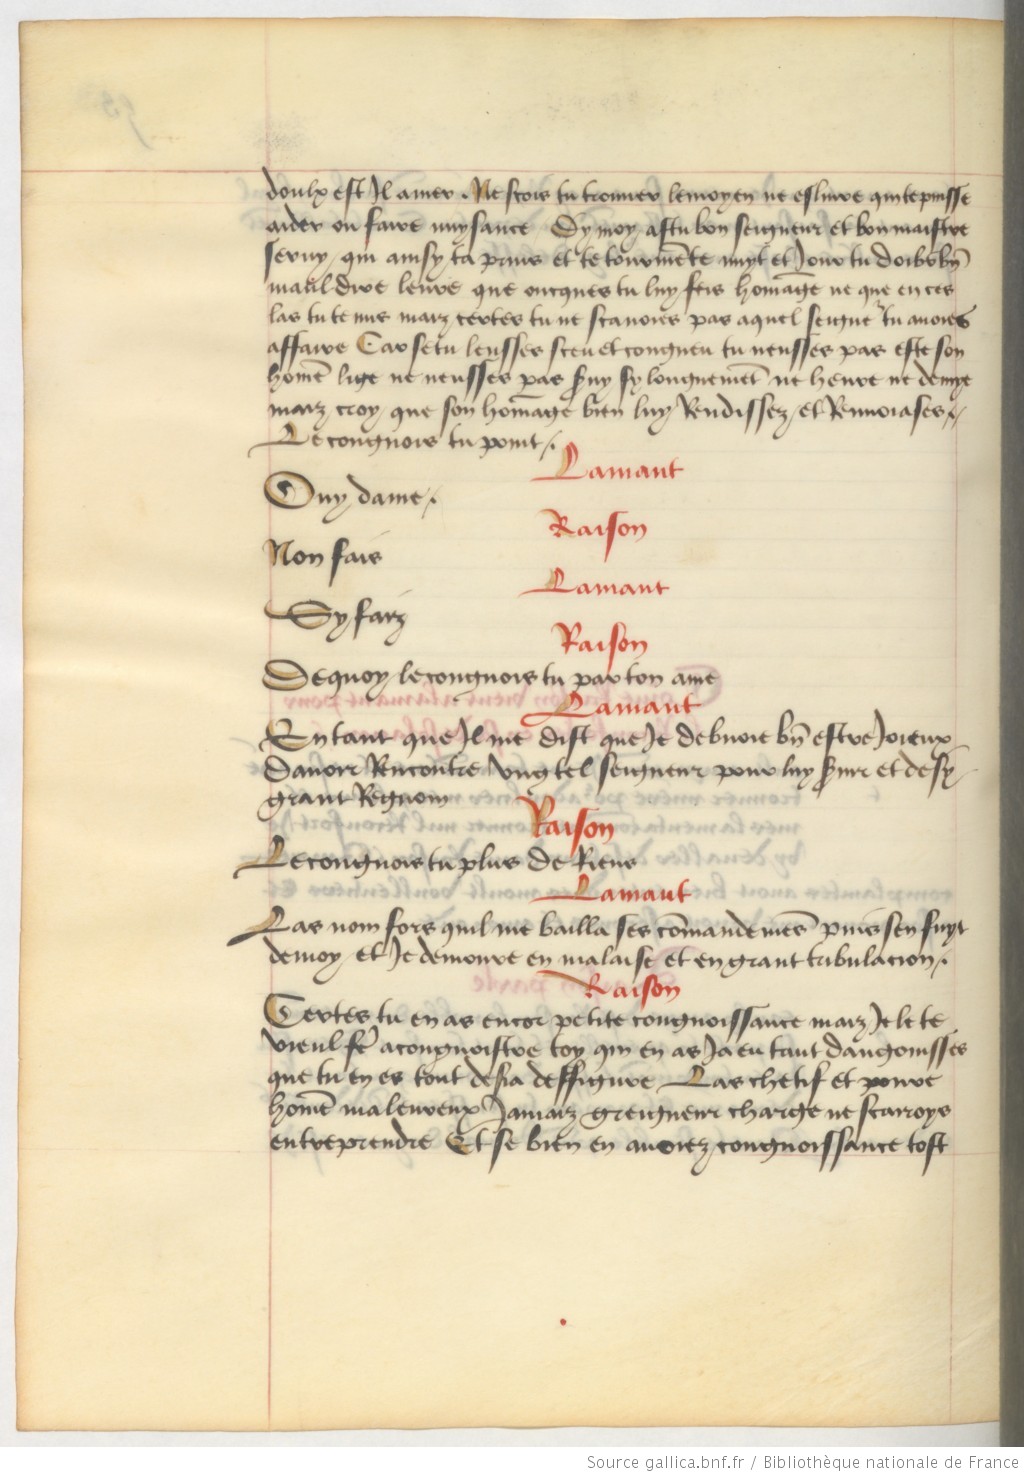 doulx est Il amer . Ne scois tu trouver le moyen ne eslivre qui te puisse
aider ou faire nuysance Dy moy as tu bon seigneur et bon maistre
servy qui ainsy ta prins et te tourmēte nuyt et Jour tu doibz bn̄
mauldire leure que oncques tu luy feis homāge ne que en ces
las tu te mis maiz certes tu ne scavoies pas a quel seigne᷑ tu avoies
affaire Car se tu leusses sceu et congneu tu neusses pas este son
homē lige ne neusses pas s̄vy sy longuemēt ne heure ne demye
maiz croy que son homāge bien luy Rendissez et Renvoiases
Le congnois tu point .
Lamant
Ouy dame .
Raison
Non fais
Lamant
Sy faiz
Raison
De quoy le congnois tu par ton ame
Lamant
En tant que Il me dist que Je debvoie bn̄ estre Joieux
davoir Rencontre Ung tel seigneur pour luy s̄vir et de sy
grant Regnom
Raison
Le congnois tu plus de Riens
Lamant
Las nom fors quil me bailla ses cōmandemēs puis sen fuyt
de moy et Je demoure en malaise et en grant tribulacion .
Raison
Certes tu en as encor petite congnoissance maiz Je le te
vieul fē acongnoistre toy qui en as Ja eu tant dangoisses
que tu en es tout desia deffigure Las chetif et povre
homē maleureux Jamaiz greigneur charge ne scarroys
entreprendre Et se bien en aviez congnoissance tost
Source gallica.bnf.fr / Bibliothèque nationale de France